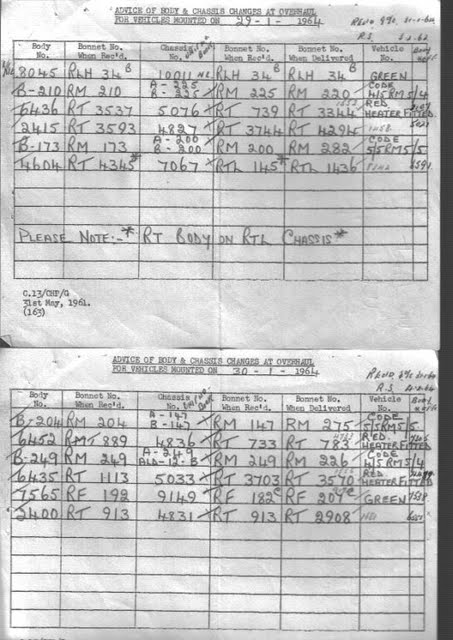 ADVICE OF BODY & CHASSIS CHANGES AT OVERHAUL
FOR VEHICLES MOUNTED ON 29-1-1964
Body No. Bonnet No. When Rec'd. Chassis No. Bonnet No. When Rec'd. Bonnet No. When Delivered Vehicle No.
8045 RLH 34 B 10011 RLH 34 B RLH 34 B GREEN
B-210 RM 210 A-225 B-225 RM 225 RM 220 CODE 4/5RM5/4
6436 RT 3537 5076 RT 739 RT 3344 RED HEATER FITTED
2415 RT 3593 4827 RT 3744 RT 4294
B-173 RM 173 A-200 B-200 RM 200 RM 282 CODE 5/5RM5/5
4604 RT 4345* 7067 RTL 145* RTL 1436
PLEASE NOTE:-* RT BODY ON RTL CHASSIS*
C.13/CHF/G
31st May, 1961.
(163)
ADVICE OF BODY & CHASSIS CHANGES AT OVERHAUL
FOR VEHICLES MOUNTED ON 30-1-1964
R.S.
Body No. Bonnet No. When Rec'd. Chassis No. Bonnet No. When Rec'd. Bonnet No. When Delivered Vehicle No.
B-204 RM 204 A-147 B-147 RM 147 RM 275 CODE 5/5RM5/5
6452 RT 889 4836 RT 733 RT 783 RED HEATER FITTED
B-249 RM 249 A-249 RM 249 RM 226 CODE 4/5RM5/4
6435 RT 1113 5033 RT 3703 RT 3570 RED HEATER FITTED
7565 RF 192 9149 RF 182 RF 209 GREEN
2400 RT 913 4831 RT 913 RT 2908